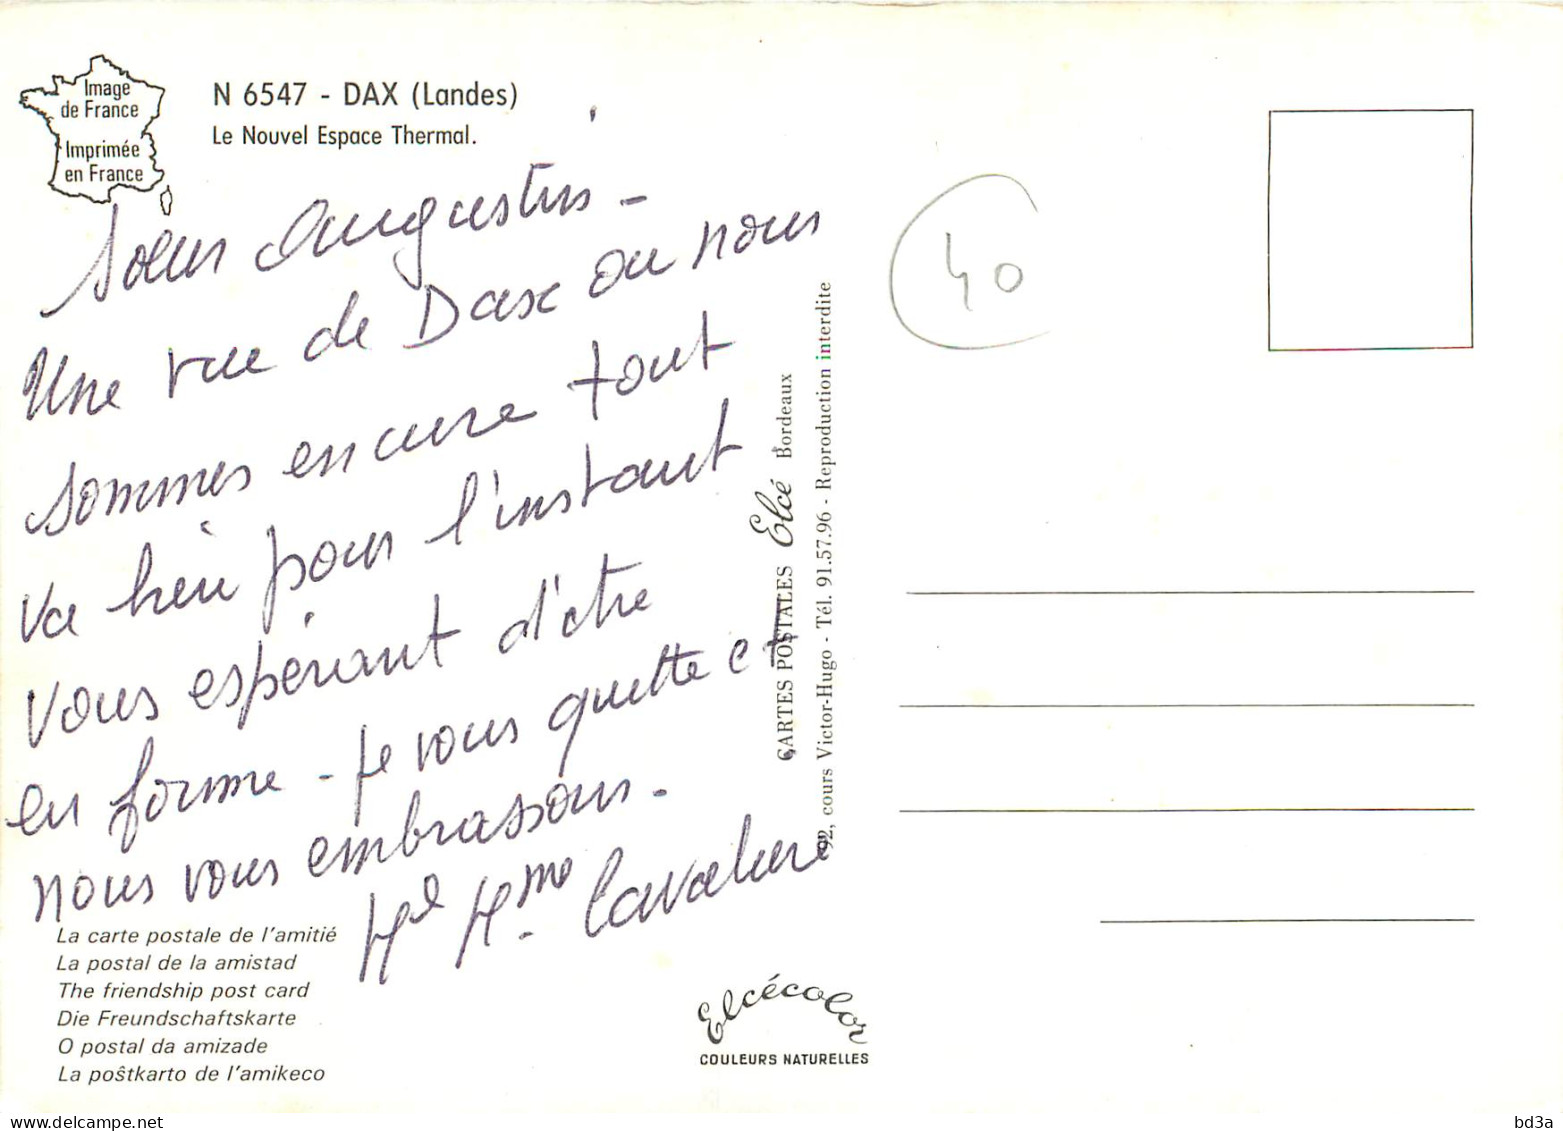 Image
de France
Imprimée
en France
N 6547 - DAX (Landes)
Le Nouvel Espace Thermal.
Soeur Augustin -
Une vue de Dax ou nous
sommes en cure tout
va bien pour l'instant
vous espérant d'être
en forme - je vous quitte et
nous vous embrassons.
Mme
La carte postale de l'amitié
La postal de la amistad
The friendship post card
Die Freundschaftskarte
O postal da amizade
La poŝtkarto de l'amikeco
CARTES POSTALES Elcé Bordeaux
92, cours Victor-Hugo - Tél. 91.57.96 - Reproduction interdite
Elcécolor
COULEURS NATURELLES
40
bd3a